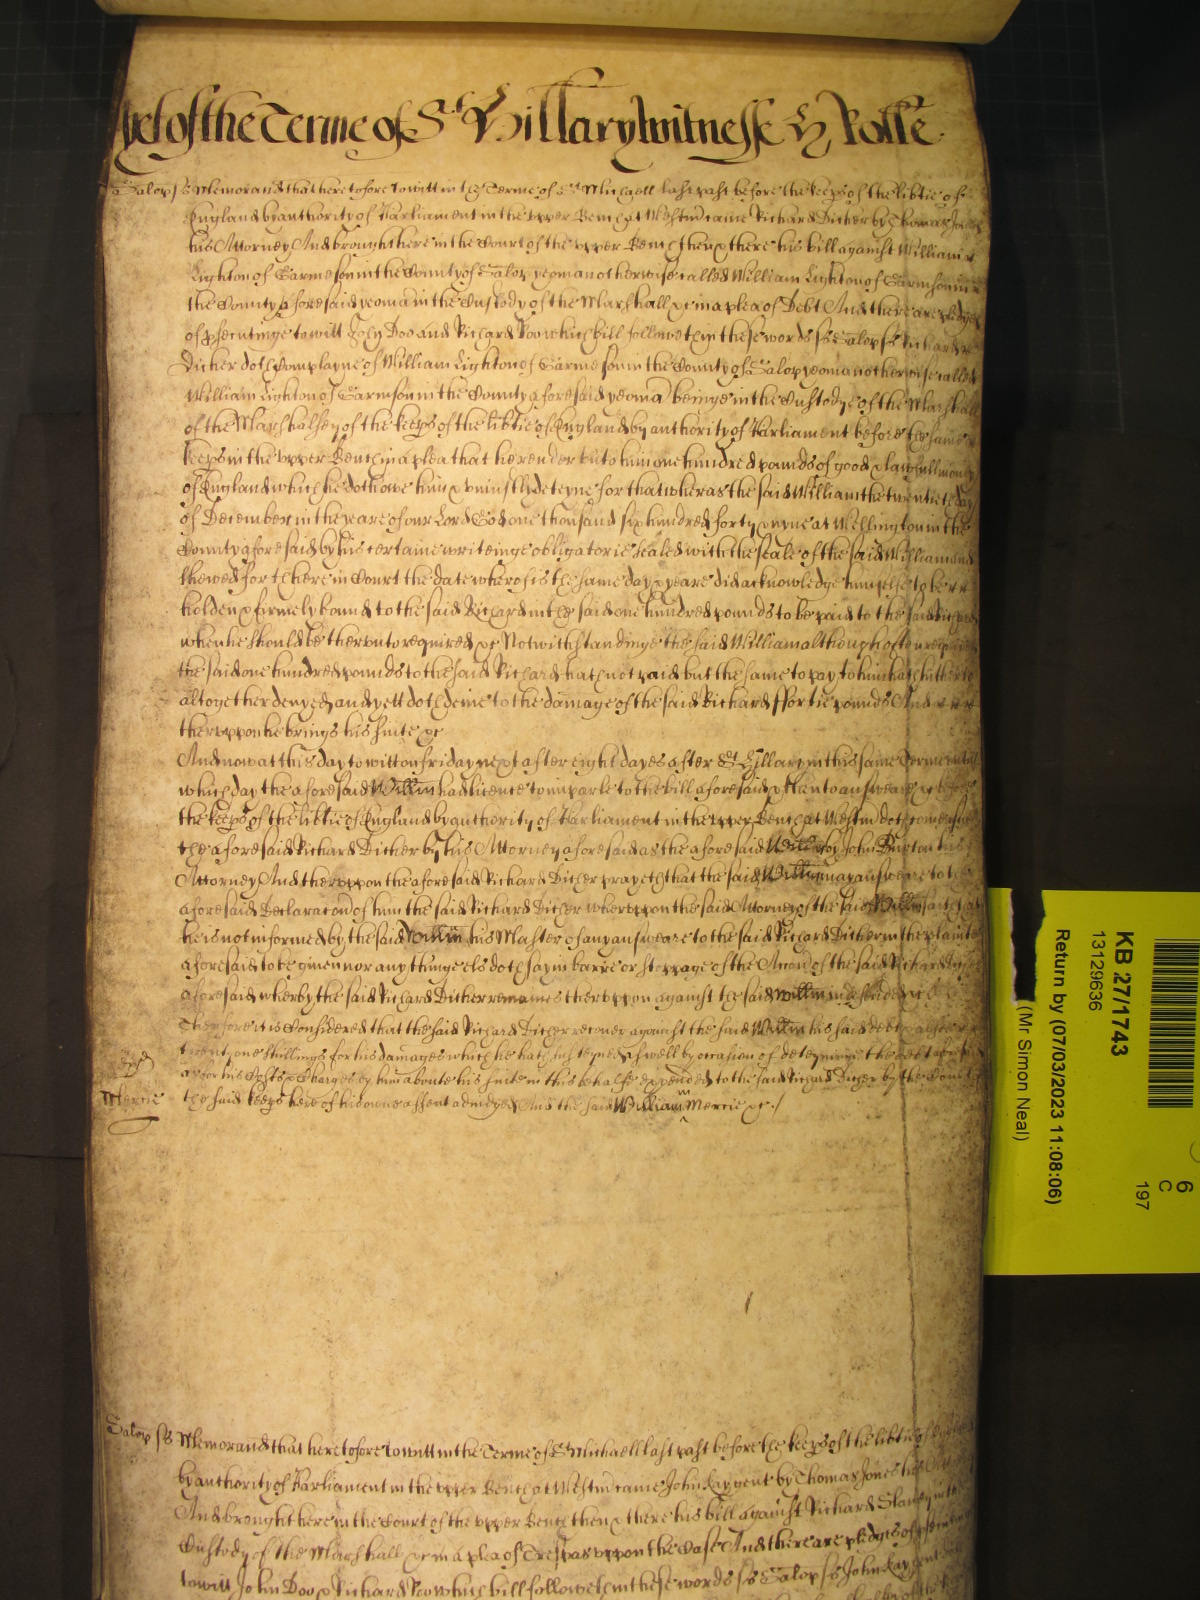 yet of the Terme of St Hillary witnesse H Rolle
Salop ss Memorand that heretofore towitt in the Terme of St Michaell last past before the keeps of the libtie of
England by authority of Parliament in the vpper Bench at Westm came Richard Dicher by Thomas Jones
his Attorney And brought here in the Court of the vpper Bench then & there his bill against William
Lighton of Garmeson in the County of Salop yeoman otherwise called William Lighton of Garmson in
the County aforesaid yeoman in the Custody of the Marshall &c in a plea of Debt And there are pledges
of psecutinge towitt John Doo and Richard Roo which bill followeth in these words ss Salop ss Richard
Dicher doth Complayne of William Lighton of Garmeson in the County of Salop yeoman otherwise called
William Lighton of Garmson in the County aforesaid yeoman beinge in the Custodye of the Marshall
of the Marshalsey of the keeps of the libtie of England by authority of Parliament before the same
keeps in the vpper Bench in a plea that he render vnto him one hundred pounds of good & lawfull mony
of England which he doth owe him & vniustly deteyne for that wheras the said William the twentieth day
of December in the yeare of our Lord God one thousand six hundred forty & nyne at Wellington in the
County aforesaid by his certaine writeinge obligatorie sealed with the seale of the said William and
shewed forth here in Court the date wherof is the same day & yeare did acknowledge himselfe to be
holden & firmely bound to the said Richard in the said one hundred pounds to be paid to the said Richard
when he should be thervnto required &c Notwithstandinge the said William although often required
the said one hundred pounds to the said Richard hath not paid but the same to pay to him hath hitherto
altogether denyed and yett doth denie to the damage of the said Richard ffortie pounds And
thervppon he brings his suite &c
And now at this day towitt on friday next after eight dayes after St Hillary in this same Terme vntill
which day the aforesaid Willm had licence to imparle to the bill aforesaid & then to answeare &c before
the keeps of the libtie of England by authority of Parliament in the vpper Bench at Westm doth come aswell
the aforesaid Richard Dicher by his Attorney aforesaid as the aforesaid Willm by John Burton his
Attorney And thervppon the aforesaid Richard Dicher prayeth that the said Willm may answeare to the
aforesaid Declaracon of him the said Richard Dicher whervppon the said Attorney of the said Willm saith that
he is not informed by the said Willm his Master of any answeare to the said Richard Dicher in the plainte
aforesaid to be given nor any thinge els doth say in barre or stoppage of the Accon of the said Richard Dicher
aforesaid wherby the said Richard Dicher remaines thervppon against the said Willm
Therfore it is Considered that the said Richard Dicher recover against the said Willm his said debt &
twenty one shillings for his damages which he hath susteyned aswell by occasion of deteyninge the debt aforesaid
as for his Costs & Charges by him aboute his suite in this behalfe expended to the said Richard Dicher by the Court of
the said keeps here of his owne assent adiudged And the said William in Mercie &c
Mercie
Salop ss Memorand that heretofore towitt in the Terme of St Michaell last past before the keeps of the libtie of England
by authority of Parliament in the vpper Bench at Westm came John Kay gent by Thomas Jones his Attorney
And brought here in the Court of the vpper Bench then & there his bill against Richard Slaney in the
Custody of the Marshall &c in a plea of Trespas vppon the Case And there are pledges of psecutinge
towitt John Doo & Richard Roo which bill followeth in these words ss Salop ss John Kay gent
KB 27/1743
13129636
Return by (07/03/2023 11:08:06)
(Mr Simon Neal)
6
C
197